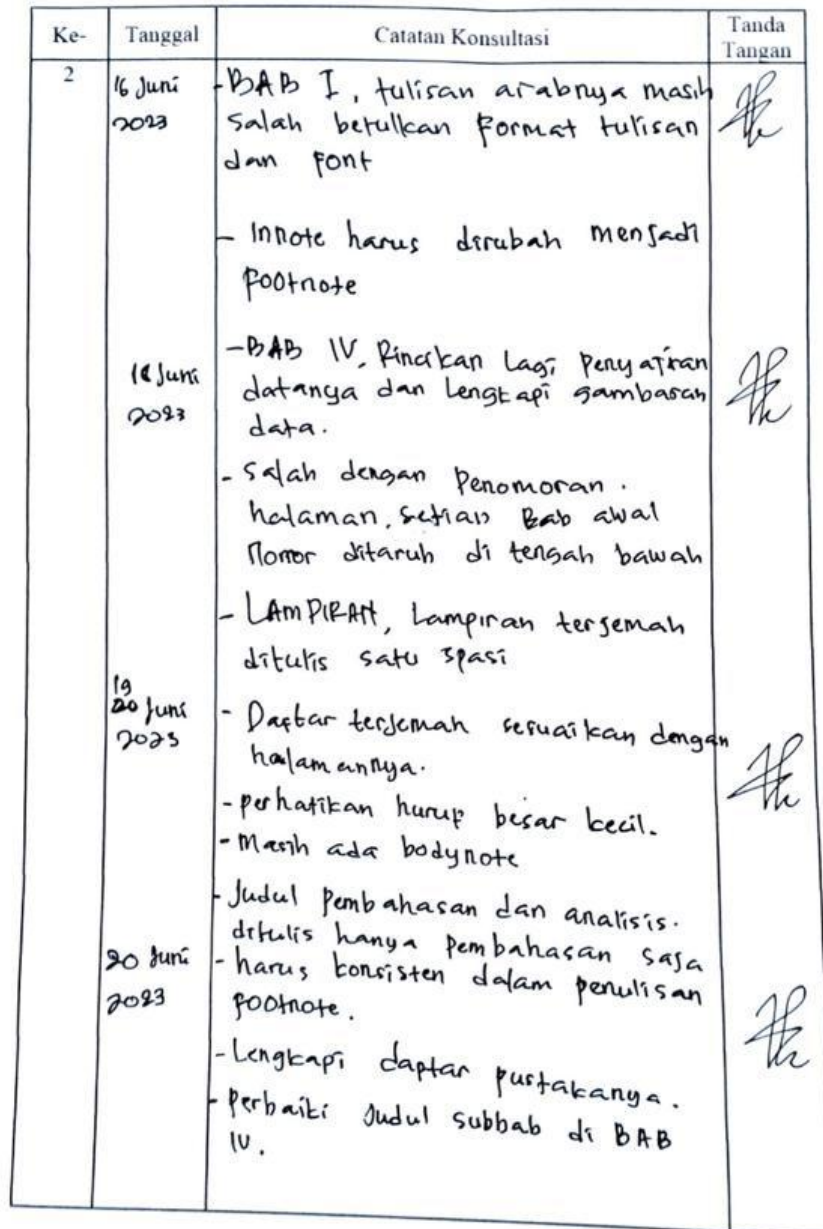 Ke- Tanggal Catatan Konsultasi Tanda Tangan
2
16 Juni 2023
- BAB I, tulisan arabnya masih
salah betulkan Format tulisan
dan Font
- Innote harus dirubah menjadi
Footnote
18 Juni 2023
- BAB IV, Rincikan Lagi Penyajian
datanya dan Lengkapi gambaran
data.
- Salah dengan Penomoran.
halaman, setiap Bab awal
Nomor ditaruh di tengah bawah
- LAMPIRAN, Lampiran terjemah
ditulis satu spasi
19
20 Juni 2023
- Daftar terjemah sesuaikan dengan
halamannya.
- perhatikan hurup besar kecil.
- Masih ada bodynote
- Judul Pembahasan dan analisis.
ditulis hanya Pembahasan saja
20 Juni 2023
- harus konsisten dalam penulisan
Footnote.
- Lengkapi daptar pustakanya.
- Perbaiki Judul subbab di BAB
IV.